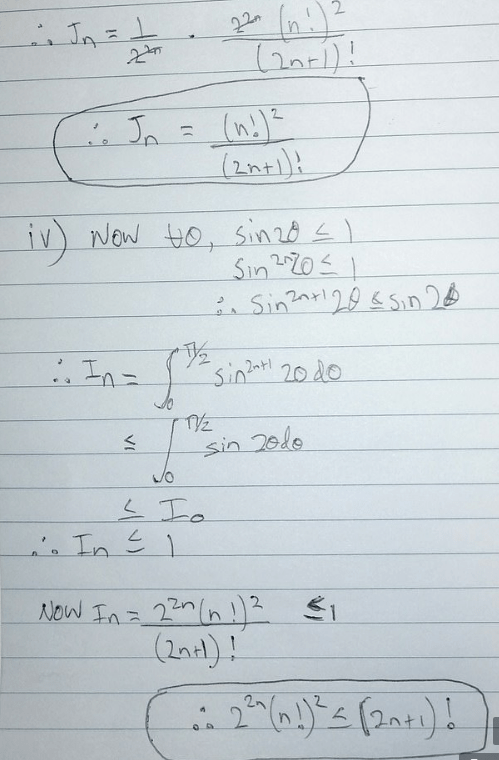 ∴ Jₙ = 1/2²ⁿ · 2²ⁿ (n!)²/(2n+1)!
∴ Jₙ = (n!)²/(2n+1)!
iv) NOW ∀θ, sin2θ ≤ 1
sin²ⁿ2θ ≤ 1
∴ sin²ⁿ⁺¹ 2θ ≤ sin 2θ
∴ Iₙ = ∫₀^(π/2) sin²ⁿ⁺¹ 2θ dθ
≤ ∫₀^(π/2) sin 2θdθ
≤ I₀
∴ Iₙ ≤ 1
NOW Iₙ = 2²ⁿ(n!)²/(2n+1)! ≤1
∴ 2²ⁿ(n!)² ≤ (2n+1)!